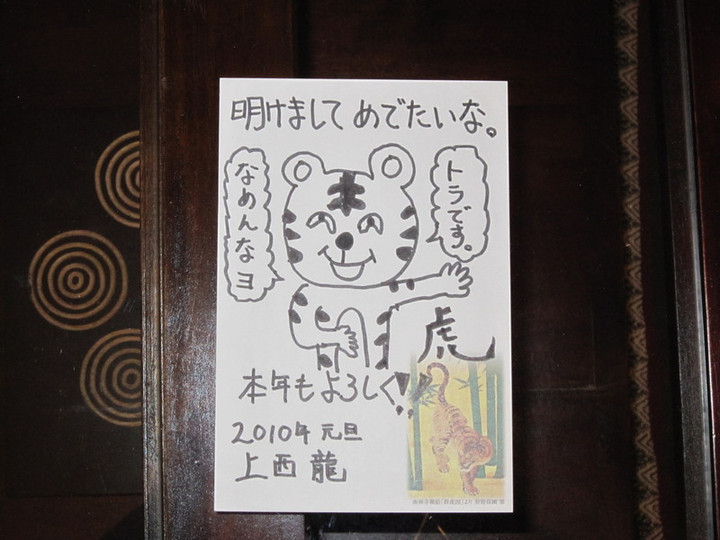 明けまして めでたいな。
トラです。
なめんなヨ
虎
本年もよろしく!!
2010年 元旦
上西 龍